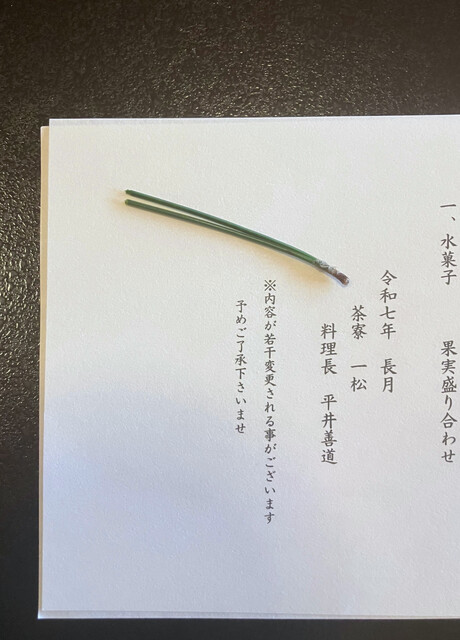 一、水菓子　果実盛り合わせ
令和七年　長月
茶寮　一松
料理長　平井善道
※内容が若干変更される事がございます
予めご了承下さいませ